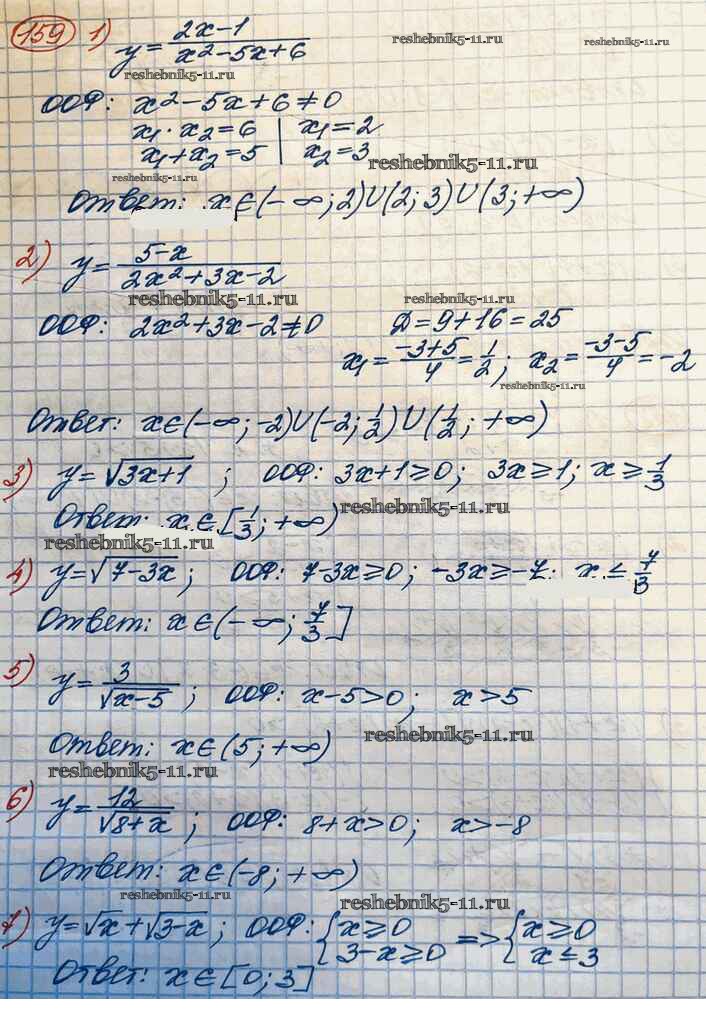 159 1) y = (2x-1)/(x²-5x+6)
reshebnik5-11.ru
reshebnik5-11.ru
reshebnik5-11.ru
ООФ: x²-5x+6≠0
x₁·x₂=6 | x₁=2
x₁+x₂=5 | x₂=3
reshebnik5-11.ru
reshebnik5-11.ru
Ответ: x∈(-∞;2)∪(2;3)∪(3;+∞)
2) y = (5-x)/(2x²+3x-2)
reshebnik5-11.ru
reshebnik5-11.ru
ООФ: 2x²+3x-2≠0 Д=9+16=25
x₁ = (-3+5)/4 = 1/2; x₂ = (-3-5)/4 = -2
reshebnik5-11.ru
Ответ: x∈(-∞;-2)∪(-2;1/2)∪(1/2;+∞)
3) y=√(3x+1); ООФ: 3x+1≥0; 3x≥1; x≥1/3
reshebnik5-11.ru
Ответ: x∈[1/3;+∞)
reshebnik5-11.ru
4) y=√(7-3x); ООФ: 7-3x≥0; -3x≥-7; x≤7/3
Ответ: x∈(-∞;7/3]
5) y = 3/√(x-5); ООФ: x-5>0; x>5
Ответ: x∈(5;+∞)
reshebnik5-11.ru
reshebnik5-11.ru
6) y = 12/√(8+x); ООФ: 8+x>0; x>-8
Ответ: x∈(-8;+∞)
reshebnik5-11.ru
reshebnik5-11.ru
7) y=√x+√(3-x); ООФ: {x≥0 => {x≥0
3-x≥0 x≤3
Ответ: x∈[0;3]